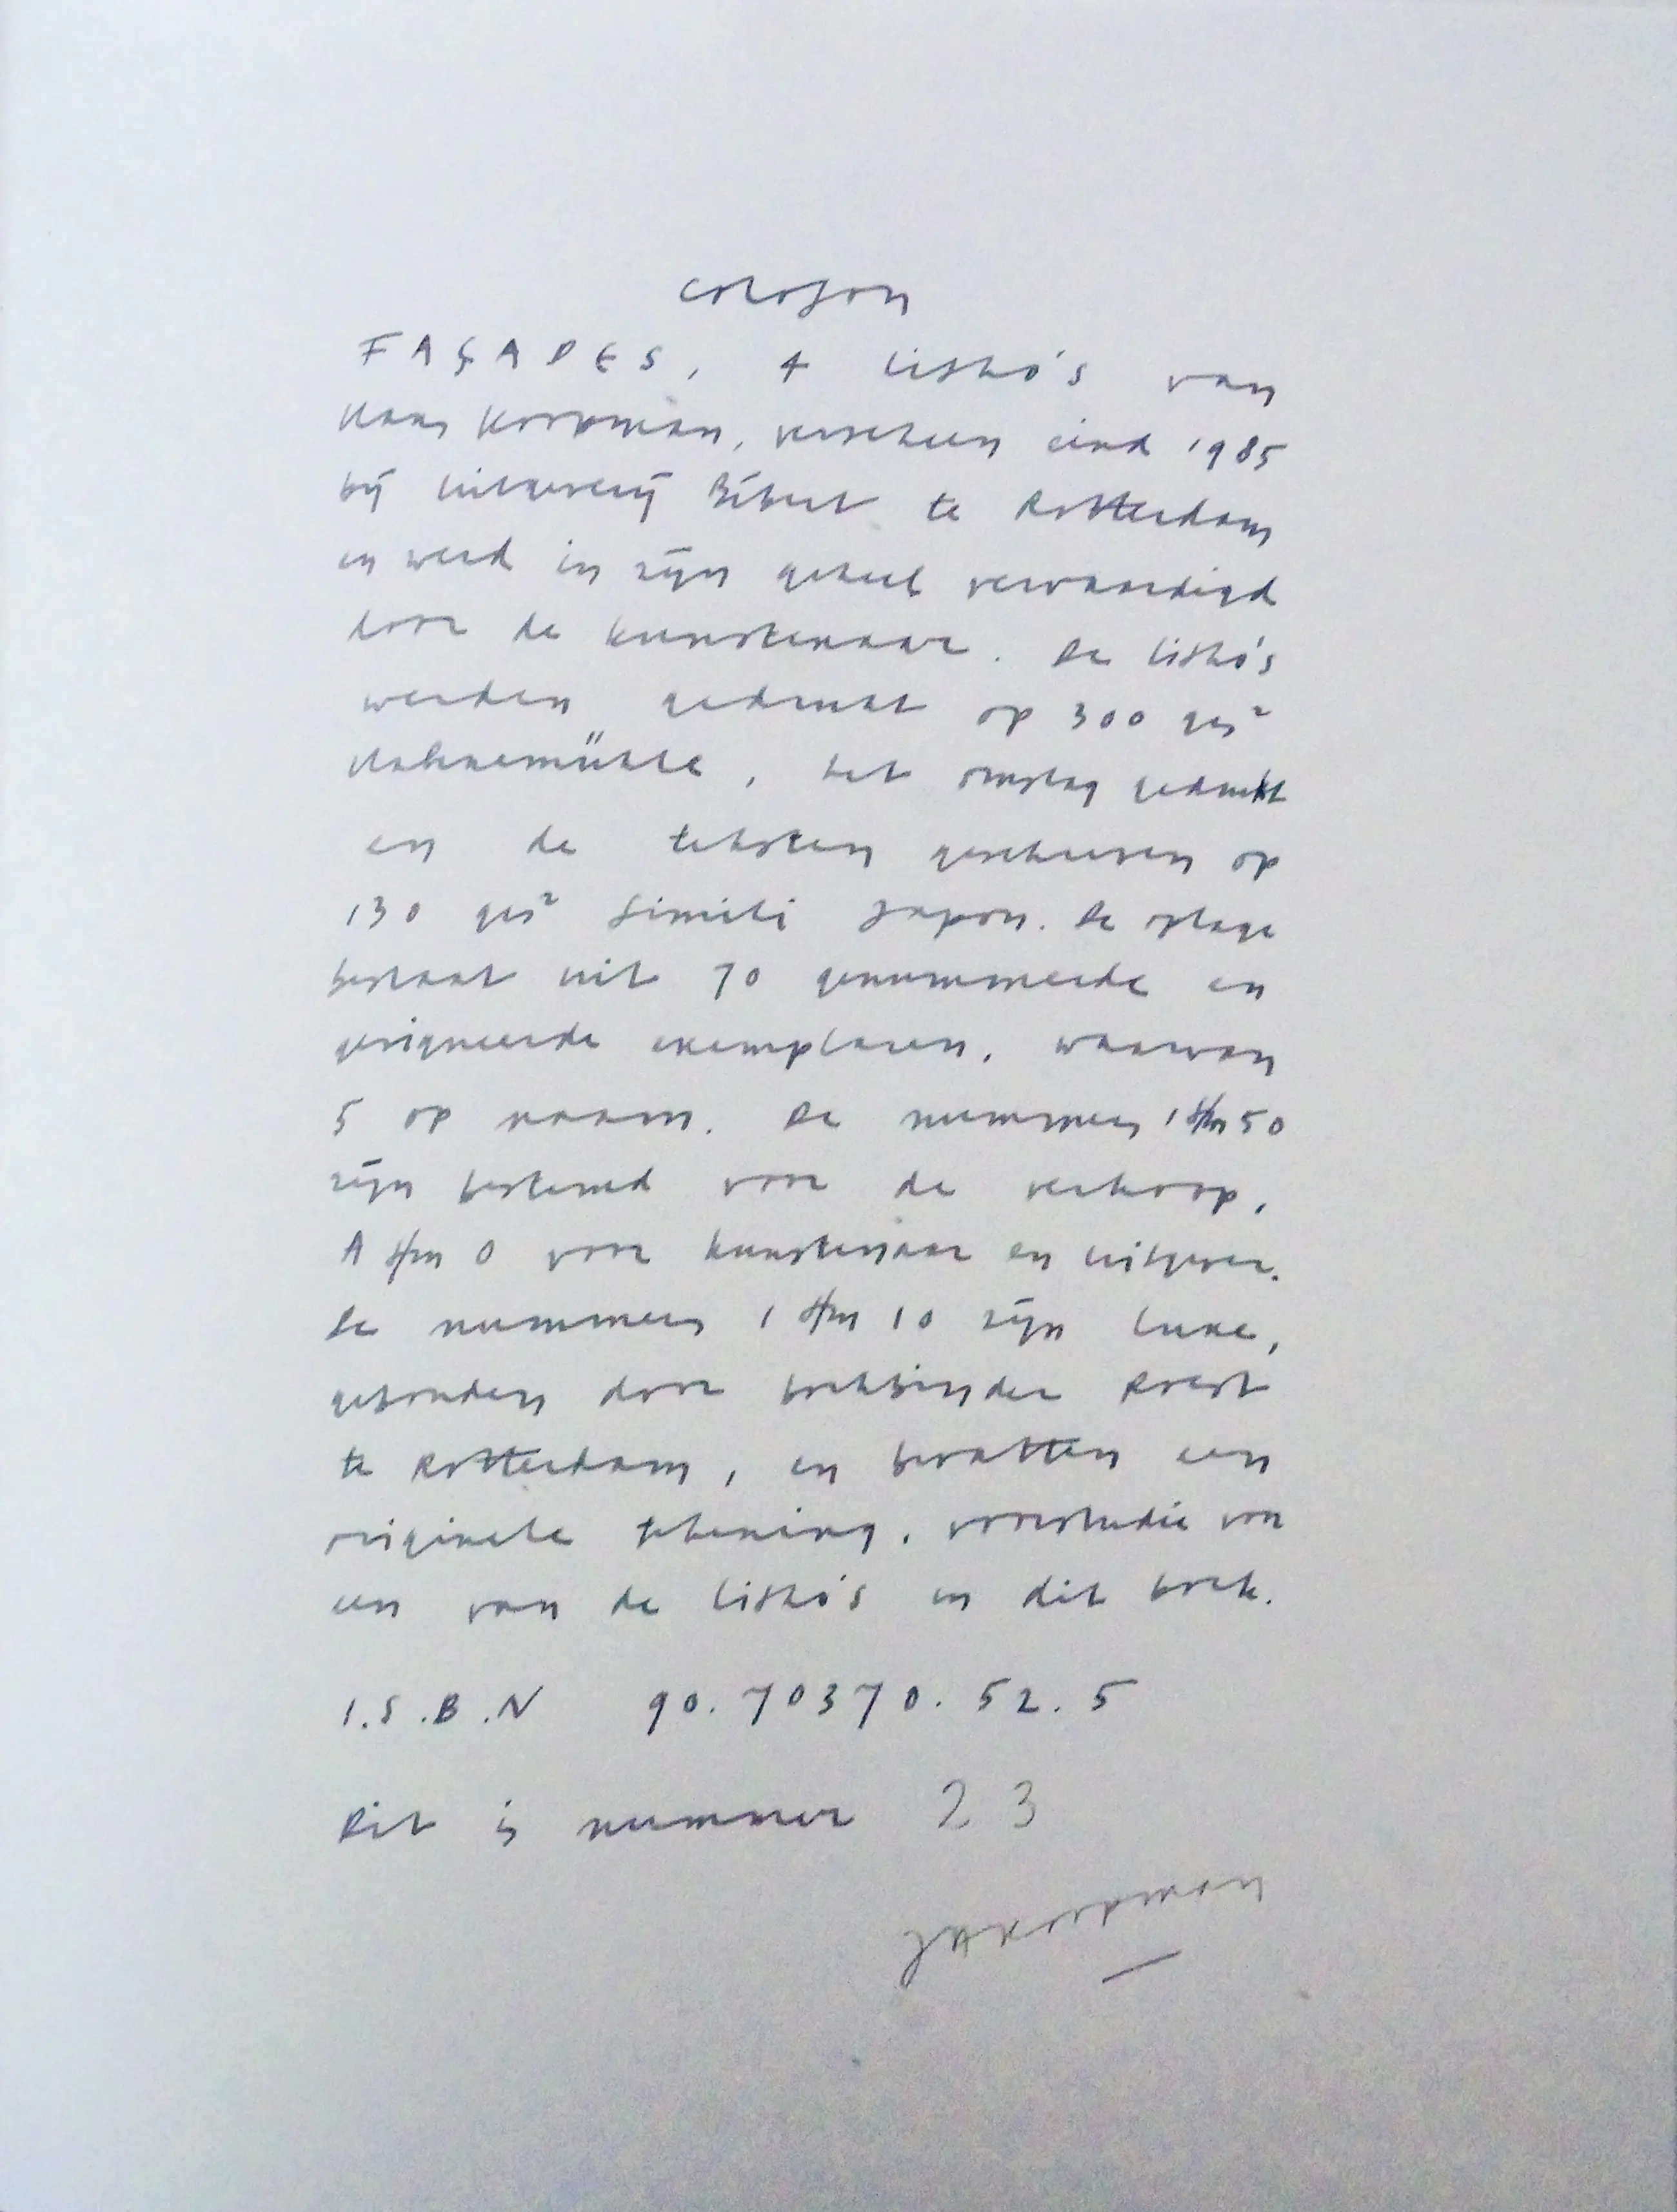 colofon
FAÇADES, 4 litho's van
Haas Koopman, verscheen eind 1985
bij uitgeverij Bébert te Rotterdam
en werd in zijn geheel vervaardigd
door de kunstenaar. De litho's
werden gedrukt op 300 grs²
Hahnemühle, het omslag gedrukt
en de teksten geschreven op
130 grs² Simili Japon. De oplage
bestaat uit 70 genummerde en
gesigneerde exemplaren, waarvan
5 op naam. De nummers 1 t/m 50
zijn bestemd voor de verkoop,
A t/m O voor kunstenaar en uitgever.
De nummers 1 t/m 10 zijn luxe,
gebonden door boekbinder Roest
te Rotterdam, en bevatten een
originele tekening, voorstudie voor
een van de litho's in dit boek.
I.S.B.N 90.70370.52.5
Dit is nummer 23
JHKoopman